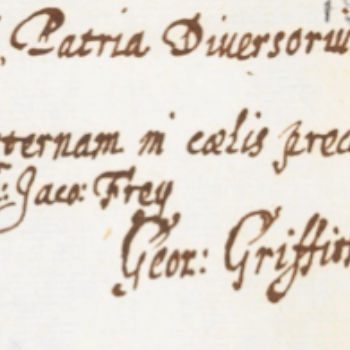 Patria Diversoru
ternam in cœlis prec
Jaco: Frey
Geor: Griffit